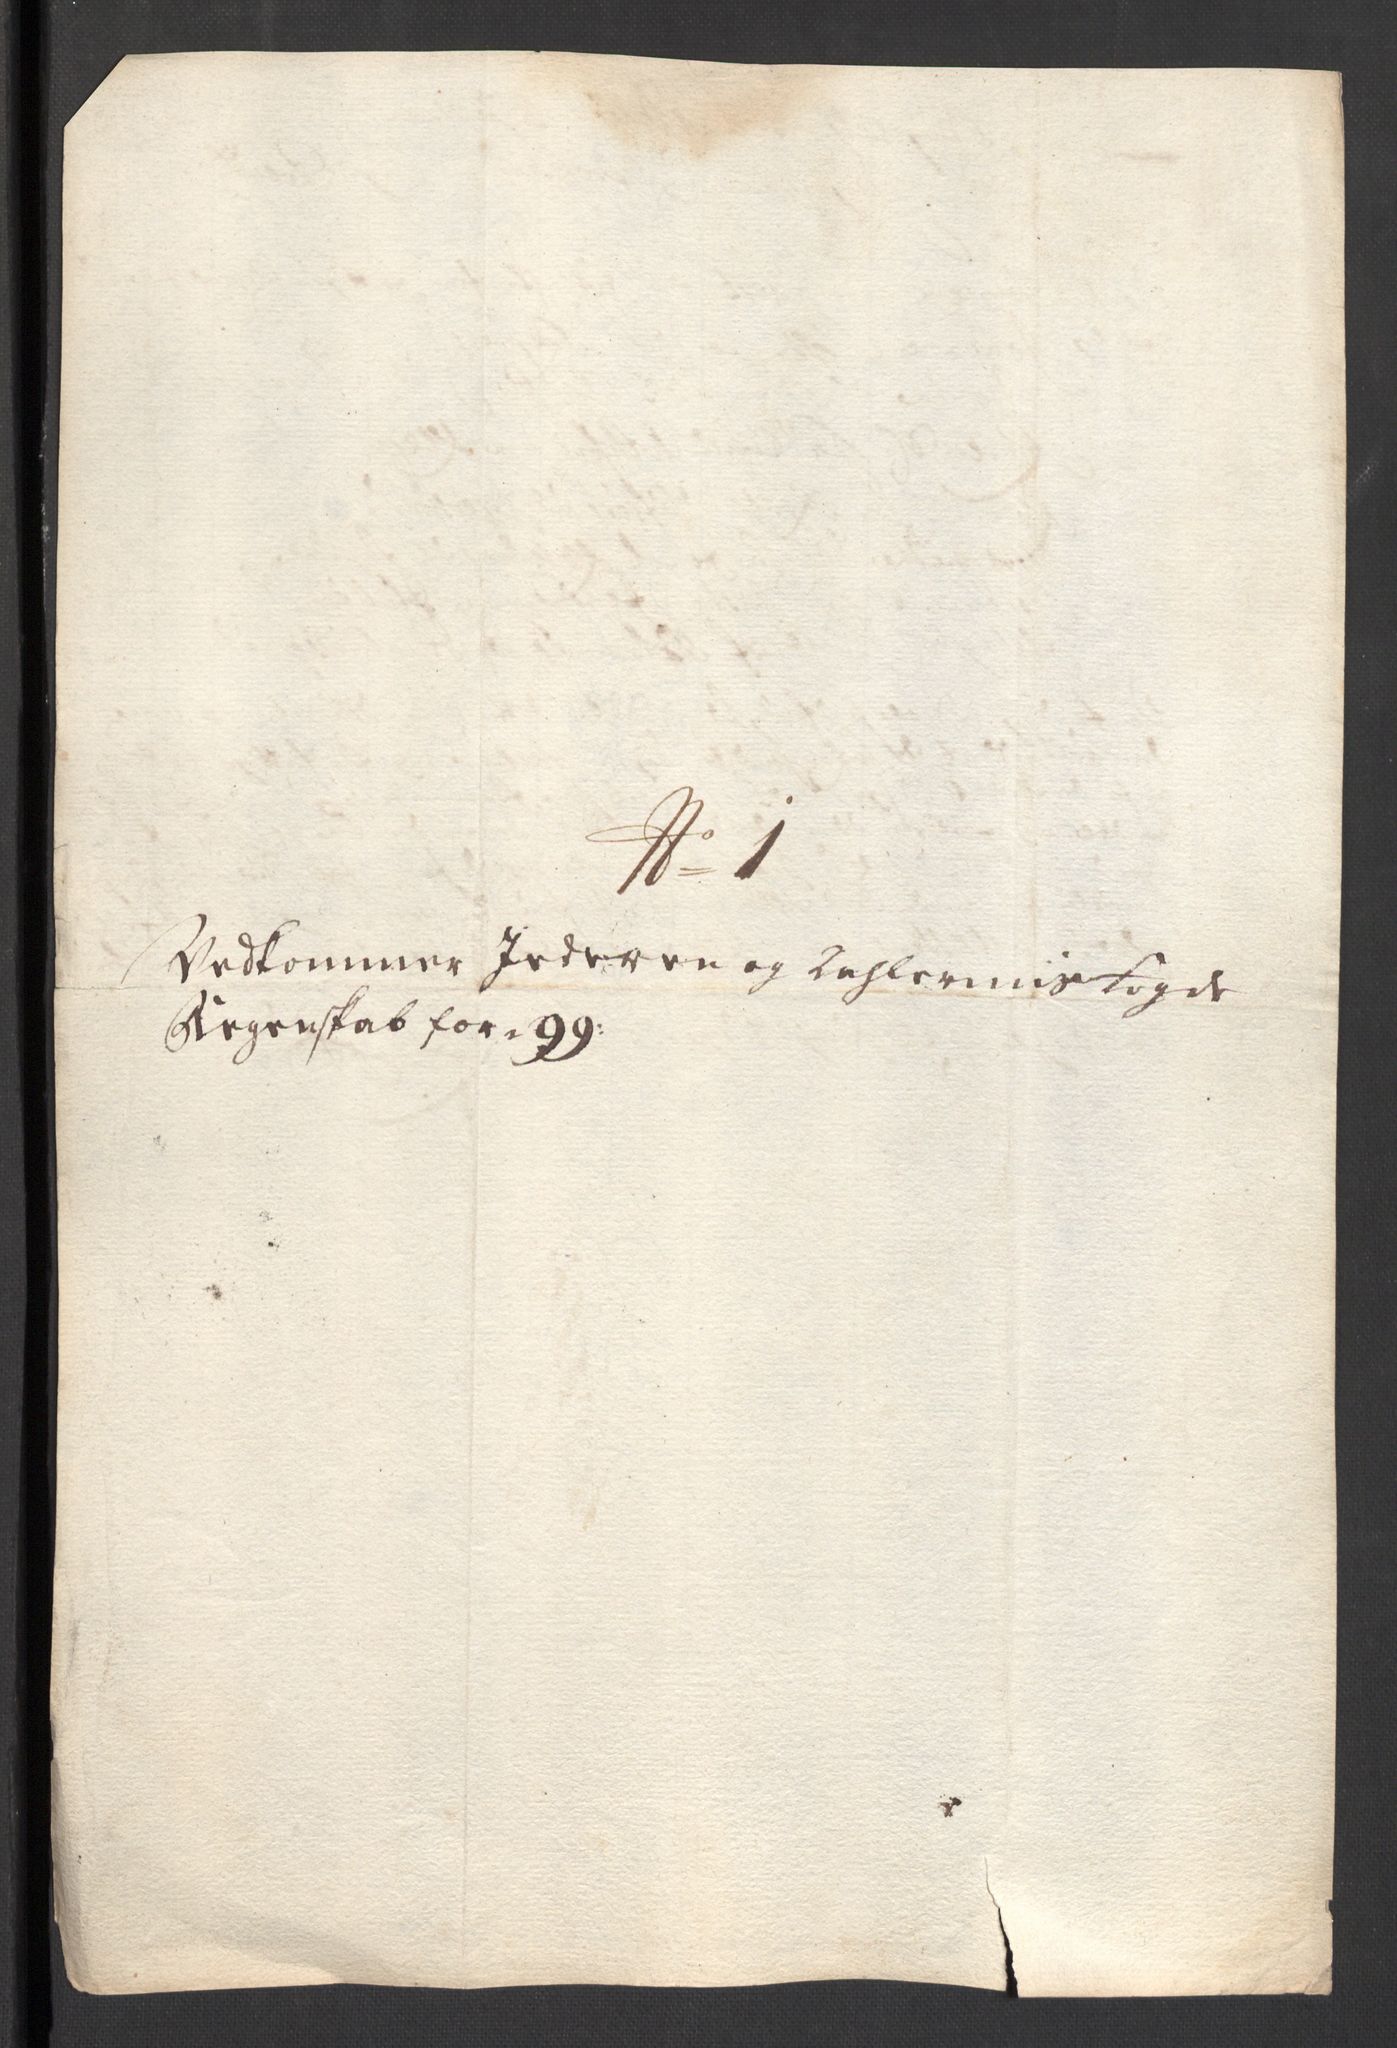 No 1
Vedkommer Jederen og Dahlernis fogde
Regenskab for 99: